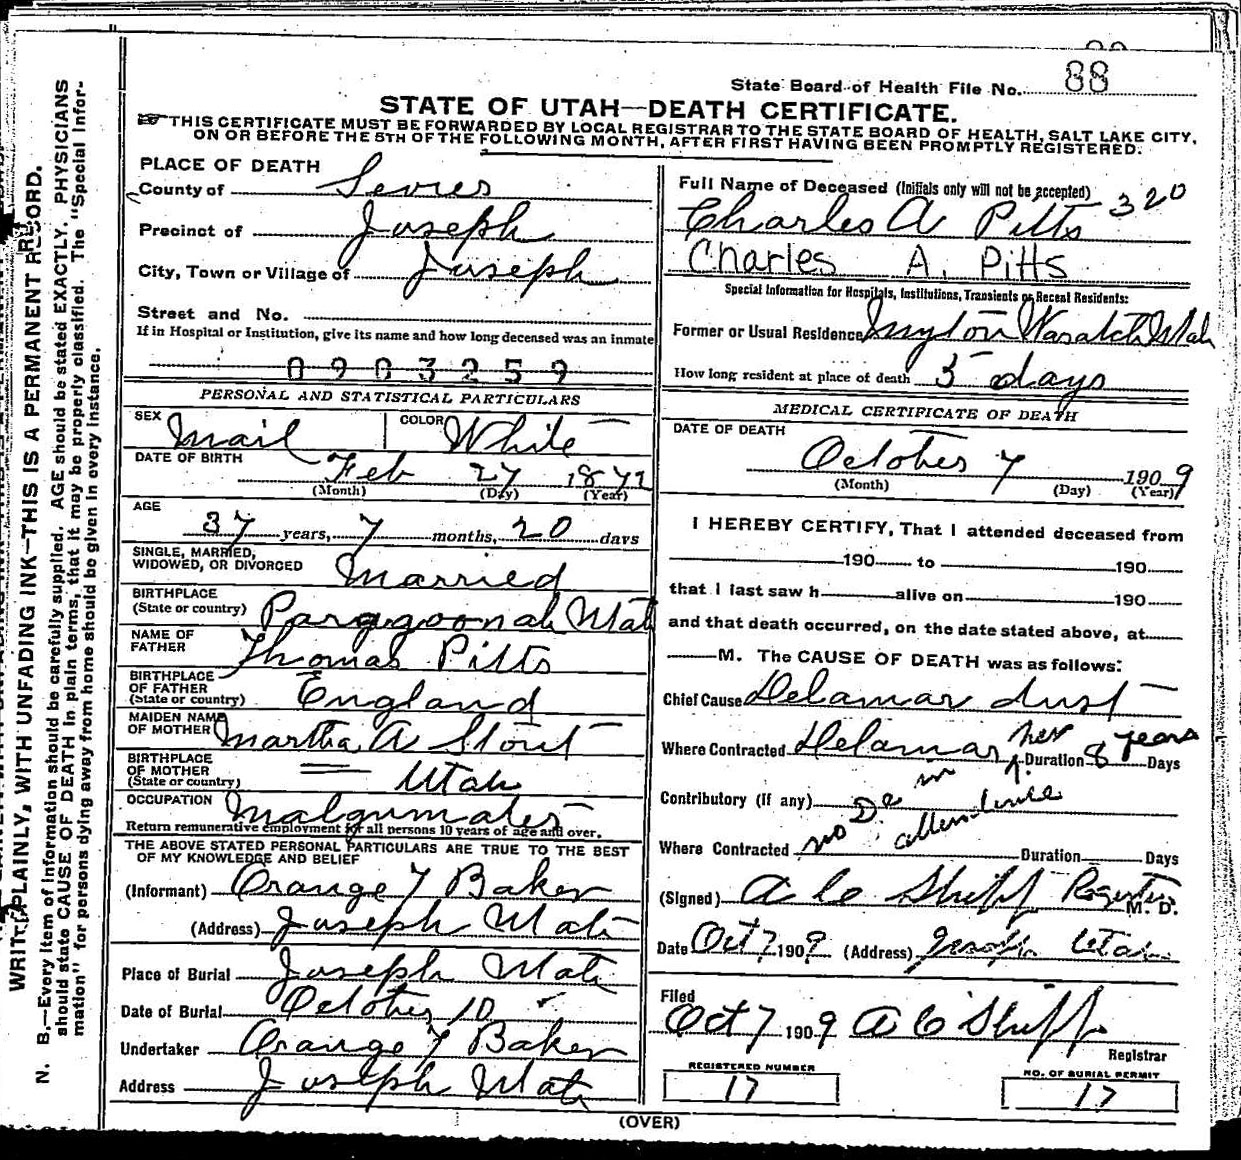 State Board of Health File No. 88
STATE OF UTAH—DEATH CERTIFICATE.
THIS CERTIFICATE MUST BE FORWARDED BY LOCAL REGISTRAR TO THE STATE BOARD OF HEALTH, SALT LAKE CITY,
ON OR BEFORE THE 5TH OF THE FOLLOWING MONTH, AFTER FIRST HAVING BEEN PROMPTLY REGISTERED.
WRITE PLAINLY, WITH UNFADING INK—THIS IS A PERMANENT RECORD.
N. B.—Every item of information should be carefully supplied. AGE should be stated EXACTLY. PHYSICIANS
should state CAUSE OF DEATH in plain terms, that it may be properly classified. The "Special Infor-
mation" for persons dying away from home should be given in every instance.
PLACE OF DEATH
County of Sevier
Precinct of Joseph
City, Town or Village of Joseph
Street and No.
If in Hospital or Institution, give its name and how long deceased was an inmate
0903259
PERSONAL AND STATISTICAL PARTICULARS
SEX Mail COLOR White
DATE OF BIRTH Feb 27 1872
(Month) (Day) (Year)
AGE
37 years, 7 months, 20 days
SINGLE, MARRIED,
WIDOWED, OR DIVORCED Married
BIRTHPLACE
(State or country) Paragoonah Utah
NAME OF
FATHER Thomas Pitts
BIRTHPLACE
OF FATHER
(State or country) England
MAIDEN NAME
OF MOTHER Martha A Stout
BIRTHPLACE
OF MOTHER
(State or country) Utah
OCCUPATION Malgumater
Return remunerative employment for all persons 10 years of age and over.
THE ABOVE STATED PERSONAL PARTICULARS ARE TRUE TO THE BEST
OF MY KNOWLEDGE AND BELIEF
(Informant) Orange T Baker
(Address) Joseph Utah
Place of Burial Joseph Utah
Date of Burial October 10
Undertaker Orange T Baker
Address Joseph Utah
Full Name of Deceased (Initials only will not be accepted) 320
Charles A Pitts
Charles A. Pitts
Special Information for Hospitals, Institutions, Transients or Recent Residents:
Former or Usual Residence Myton Wasatch Utah
How long resident at place of death 5 days
MEDICAL CERTIFICATE OF DEATH
DATE OF DEATH
October 7 1909
(Month) (Day) (Year)
I HEREBY CERTIFY, That I attended deceased from
190 to 190
that I last saw h alive on 190
and that death occurred, on the date stated above, at
M. The CAUSE OF DEATH was as follows:
Chief Cause Delamar dust
Where Contracted Delamar Nev Duration 8 years Days
Contributory (If any) no Dr in
Where Contracted attendance Duration Days
(Signed) A Co Shipp M. D.
Date Oct 7 1909 (Address) Joseph Utah
Filed
Oct 7 1909 A Co Shipp
Registrar
REGISTERED NUMBER
17
NO. OF BURIAL PERMIT
17
(OVER)